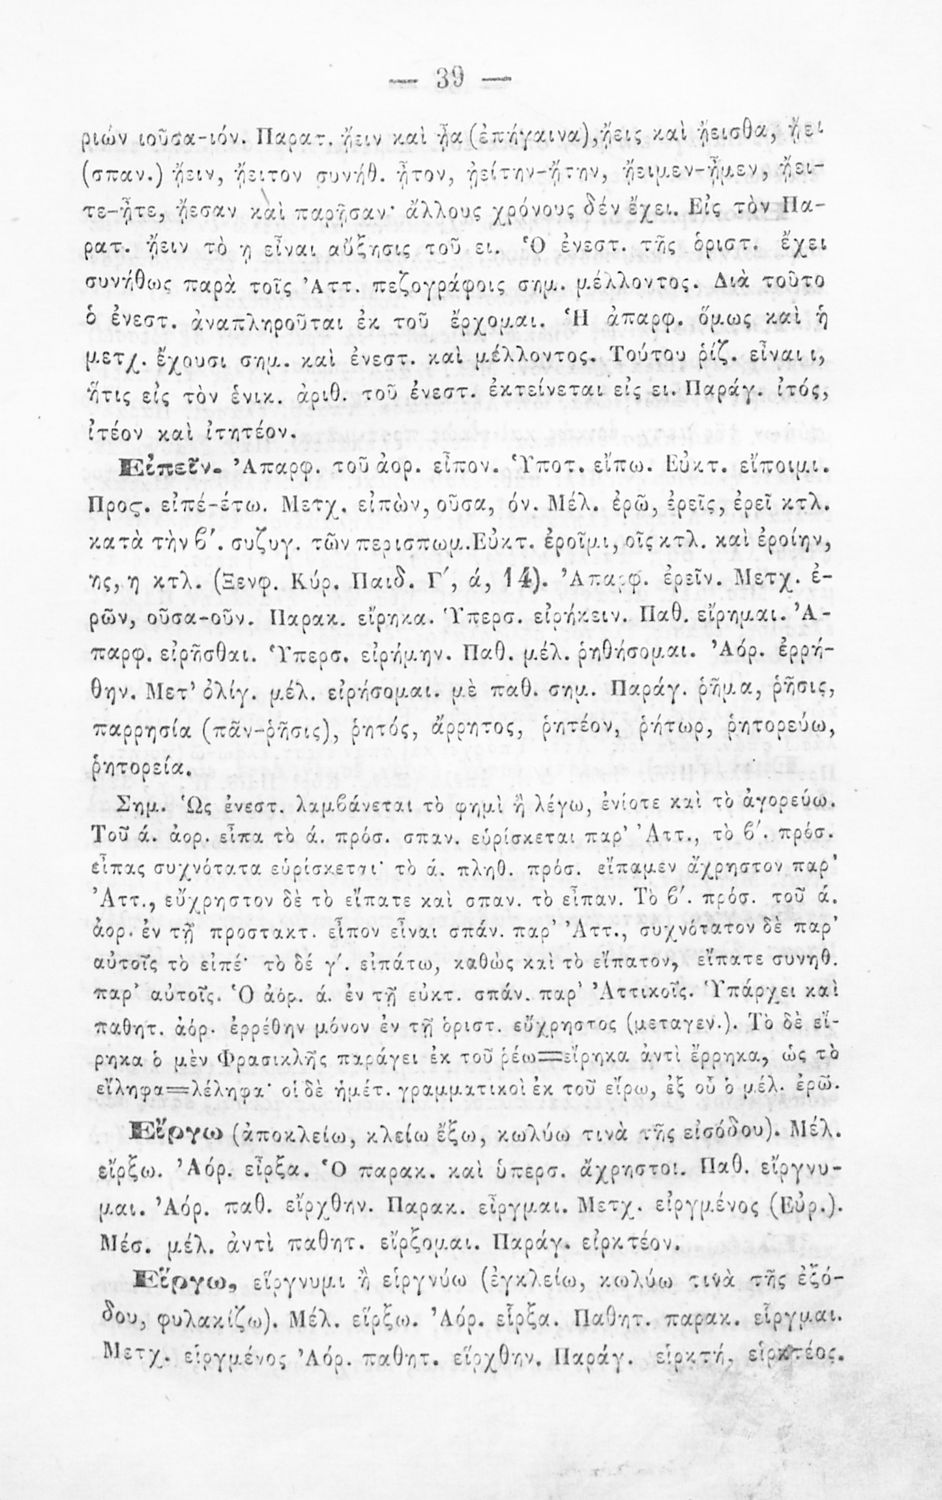 — 39 —
ριών ιοῦσα-ιόν. Παρατ. ᾔειν καὶ ᾖα (ἐπήγαινα), ᾔεις καὶ ᾔεισθα, ᾔει
(σπαν.) ᾔειν, ᾔειτον συνήθ. ᾖτον, ᾐείτην-ᾔτην, ᾔειμεν-ᾖμεν, ᾔει-
τε-ᾖτε, ᾔεσαν καὶ παρῇσαν· ἄλλους χρόνους δέν ἔχει. Εἰς τὸν Πα-
ρατ. ᾔειν τὸ η εἶναι αὔξησις τοῦ ει. Ὁ ἐνεστ. τῆς ὁριστ. ἔχει
συνήθως παρὰ τοῖς Ἀττ. πεζογράφοις σημ. μέλλοντος. Διὰ τοῦτο
ὁ ἐνεστ. ἀναπληροῦται ἐκ τοῦ ἔρχομαι. Ἡ ἀπαρφ. ὅμως καὶ ἡ
μετχ. ἔχουσι σημ. καὶ ἐνεστ. καὶ μέλλοντος. Τούτου ῥίζ. εἶναι ι,
ἥτις εἰς τὸν ἑνικ. ἀριθ. τοῦ ἐνεστ. ἐκτείνεται εἰς ει. Παράγ. ἰτός,
ἰτέον καὶ ἰτητέον.
Εἰπεῖν. Ἀπαρφ. τοῦ ἀορ. εἶπον. Ὑποτ. εἴπω. Εὐκτ. εἴποιμι.
Προς. εἰπέ-έτω. Μετχ. εἰπὼν, οῦσα, όν. Μέλ. ἐρῶ, ἐρεῖς, ἐρεῖ κτλ.
κατὰ τὴν β΄. συζυγ. τῶν περισπωμ. Εὐκτ. ἐροῖμι, οῖς κτλ. καὶ ἐροίην,
ης, η κτλ. (Ξενφ. Κύρ. Παιδ. Γ΄, ά, 14). Ἀπαρφ. ἐρεῖν. Μετχ. ἐ-
ρῶν, οῦσα-οῦν. Παρακ. εἴρηκα. Ὑπερσ. εἰρήκειν. Παθ. εἴρημαι. Ἀ-
παρφ. εἰρῆσθαι. Ὑπερσ. εἰρήμην. Παθ. μέλ. ῥηθήσομαι. Ἀόρ. ἐρρή-
θην. Μετ' ὀλίγ. μέλ. εἰρήσομαι. μὲ παθ. σημ. Παράγ. ῥῆμα, ῥῆσις,
παρρησία (πᾶν-ῥῆσις), ῥητός, ἄρρητος, ῥητέον, ῥήτωρ, ῥητορεύω,
ῥητορεία.
Σημ. Ὡς ἐνεστ. λαμβάνεται τὸ φημὶ ἢ λέγω, ἐνίοτε καὶ τὸ ἀγορεύω.
Τοῦ ά. ἀορ. εἶπα τὸ ά. πρόσ. σπαν. εὑρίσκεται παρ' Ἀττ., τὸ β΄. πρόσ.
εἶπας συχνότατα εὑρίσκεται· τὸ ά. πληθ. πρόσ. εἴπαμεν ἄχρηστον παρ'
Ἀττ., εὔχρηστον δὲ τὸ εἴπατε καὶ σπαν. τὸ εἶπαν. Τὸ β΄. πρόσ. τοῦ ά.
ἀορ. ἐν τῇ προστακτ. εἶπον εἶναι σπάν. παρ' Ἀττ., συχνότατον δὲ παρ'
αὐτοῖς τὸ εἰπέ· τὸ δέ γ΄. εἰπάτω, καθὼς καὶ τὸ εἴπατον, εἴπατε συνηθ.
παρ' αὐτοῖς. Ὁ ἀόρ. ά. ἐν τῇ εὐκτ. σπάν. παρ' Ἀττικοῖς. Ὑπάρχει καὶ
παθητ. ἀόρ. ἐρρέθην μόνον ἐν τῇ ὁριστ. εὔχρηστος (μεταγεν.). Τὸ δὲ εἴ-
ρηκα ὁ μὲν Φρασικλῆς παράγει ἐκ τοῦ ῥέω=εἴρηκα ἀντὶ ἔρρηκα, ὡς τὸ
εἴληφα=λέληφα· οἱ δὲ ἡμέτ. γραμματικοὶ ἐκ τοῦ εἴρω, ἐξ οὗ ὁ μέλ. ἐρῶ.
Εἴργω (ἀποκλείω, κλείω ἔξω, κωλύω τινὰ τῆς εἰσόδου). Μέλ.
εἴρξω. Ἀόρ. εἶρξα. Ὁ παρακ. καὶ ὑπερσ. ἄχρηστοι. Παθ. εἴργνυ-
μαι. Ἀόρ. παθ. εἴρχθην. Παρακ. εἶργμαι. Μετχ. εἰργμένος (Εὐρ.).
Μέσ. μέλ. ἀντὶ παθητ. εἴρξομαι. Παράγ. εἰρκτέον.
Εἵργω, εἵργνυμι ἢ εἱργνύω (ἐγκλείω, κωλύω τινὰ τῆς ἐξό-
δου, φυλακίζω). Μέλ. εἵρξω. Ἀόρ. εἷρξα. Παθητ. παρακ. εἷργμαι.
Μετχ. εἱργμένος Ἀόρ. παθητ. εἵρχθην. Παράγ. εἱρκτή, εἱρκτέος.